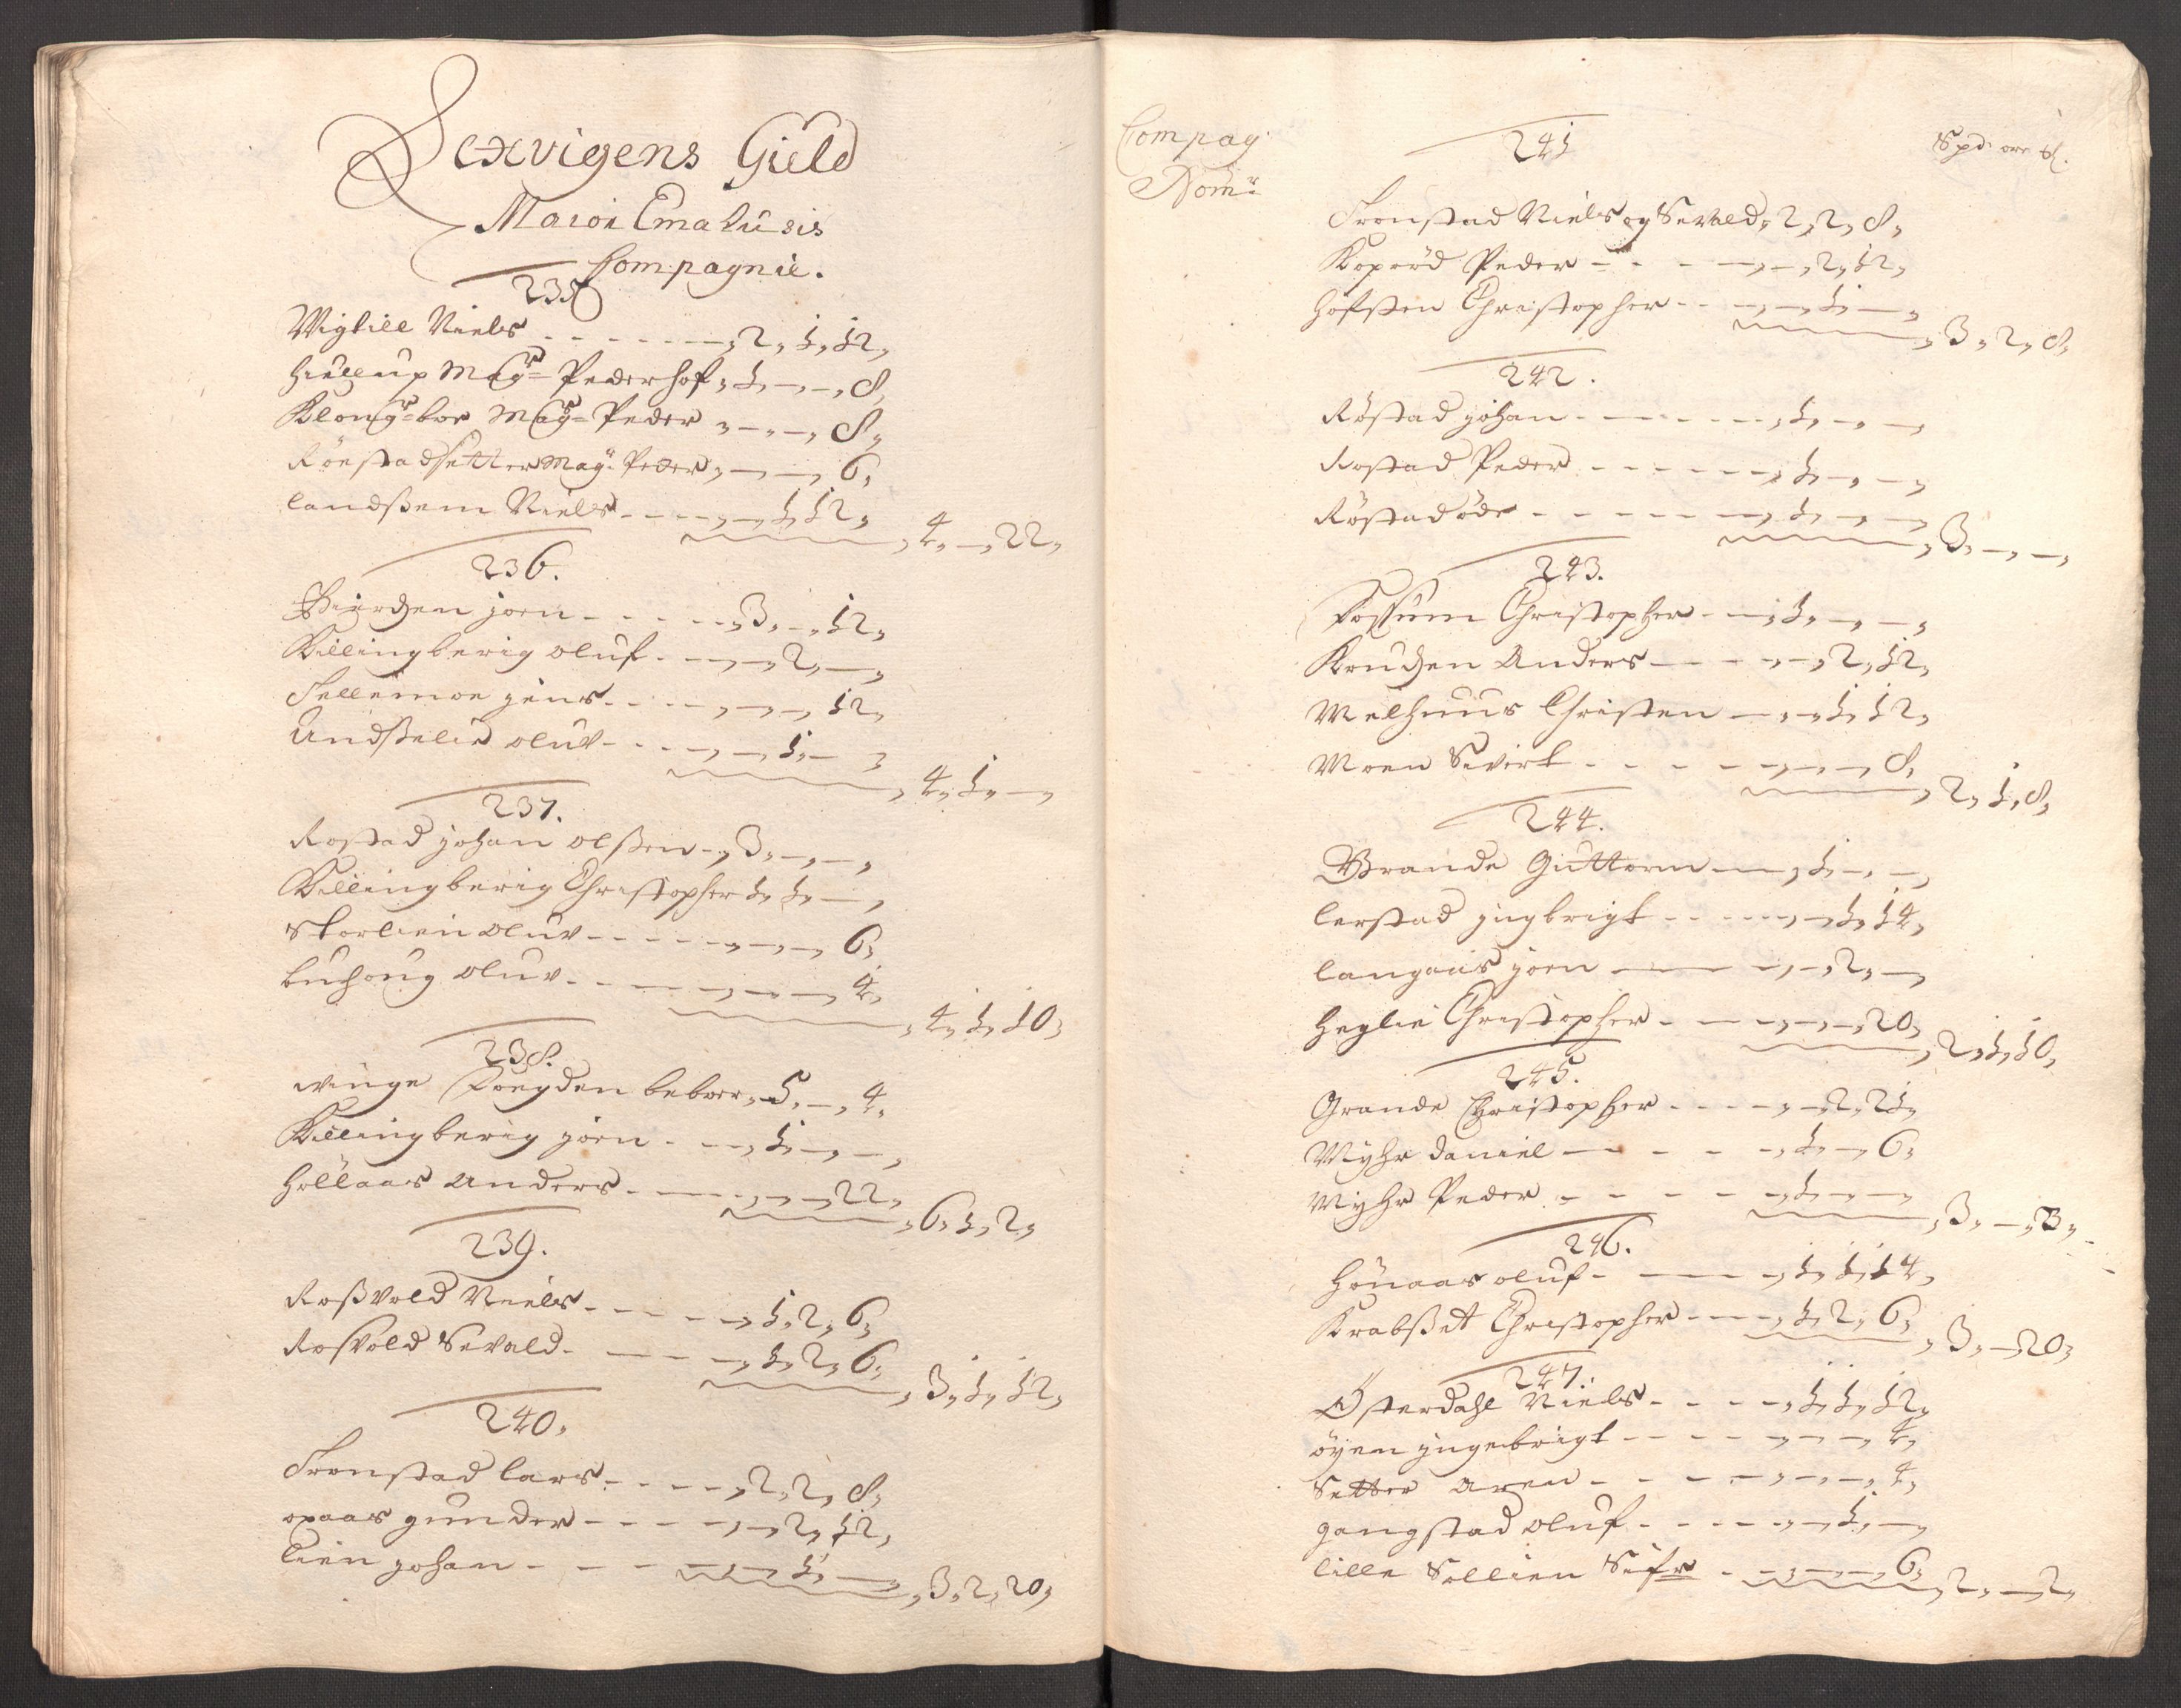 Sexvigens Gield
Maioi Emahusis
Compagnie.
235
Wigtill Niels - - - - - - -, 2, 1, 12,
Hiellup Mag: Peder hof, 1, —, 8,
Klong-bor Mag: Peder , — , — , 8,
Röestadsetter Mag: Peder, — , — , 6,
landßem Niels - - - - , — , 1, 12,
, 4, —, 22,
236.
Bierchen joen - - - - - , 3, —, 12,
Killingberig oluf - - , — , 2, — ,
Sellemoe jens - - - - , — , — , 12,
Undßelie oluv - - - - , — , 1, — ,
, 4, 1, — ,
237.
Rostad johan olßen - , 3, — , — ,
Killingberig Christopher 1, 1, — ,
Storlien oluv - - - - - , — , — , 6,
Luhoug oluv - - - — , — , — , 4,
, 4, 1, 10,
238.
winge Fougden beboer, 5, — , 4,
Killingberig joen - - , 1, — , — ,
Hollaas Anders - — - , — , — , 22,
, 6, 1, 2,
239.
Roßvold Niels - - - - - , 1, 2, 6,
Roßvold Sevald - — - - , 1, 2, 6,
, 3, 1, 12,
240.
Tronstad lars - - - - , 2, 2, 8,
opaas gunder - - - - , — , 2, 12,
lien johan - - - - , — , 1, — ,
, 3, 2, 20,
Compag:
Nom:
241
Spd: ort ſ.
Tronstad Niels og Sevald, 2, 2, 8,
Koperöd Peder - - - — , — , 2, 12,
Hofsten Christopher - - , — , 1, — ,
, 3, 2, 8,
242.
Röstad johan - — - - - , 1, — , — ,
Rostad Peder - - - - - , 1, — , — ,
Röstad öde - - - - - , 1, — , — ,
, 3, — , — ,
243.
Fossum Christopher - - , 1, — , — ,
Kruchen Anders - - - , — , 2, 12,
Melhuus Christen - , — , 1, 12,
Moen Sivert - - - - , — , — , 8,
, 2, 1, 8,
244.
Grande Guttorm — , 1, — , — ,
lerstad jngbrigt - - - - , — , 1, 14,
langaas joen — , — , 2, — ,
Heglie Christopher - - , — , — , 20,
, 2, 1, 10,
245.
Grande Christopher - - - , — , 2, 21,
Myhr daniel — - - - , 1, — , 6,
Myhr Peder - - - - , 1, — , — ,
, 3, — , 3,
246.
Hönaas oluf - — , 1, 1, 14,
Krabßet Christopher - - , 1, 2, 6,
, 3, — , 20,
247.
Österdahl Niels - - - - , 1, 1, 12,
öyen jngebrigt - - - - , — , — , 4,
Setter aren - - - - , — , — , 4,
gangstad oluf - - - - , — , 1, — ,
lille Sellien Sifr - - , — , — , 6,
, 2, — , 2,